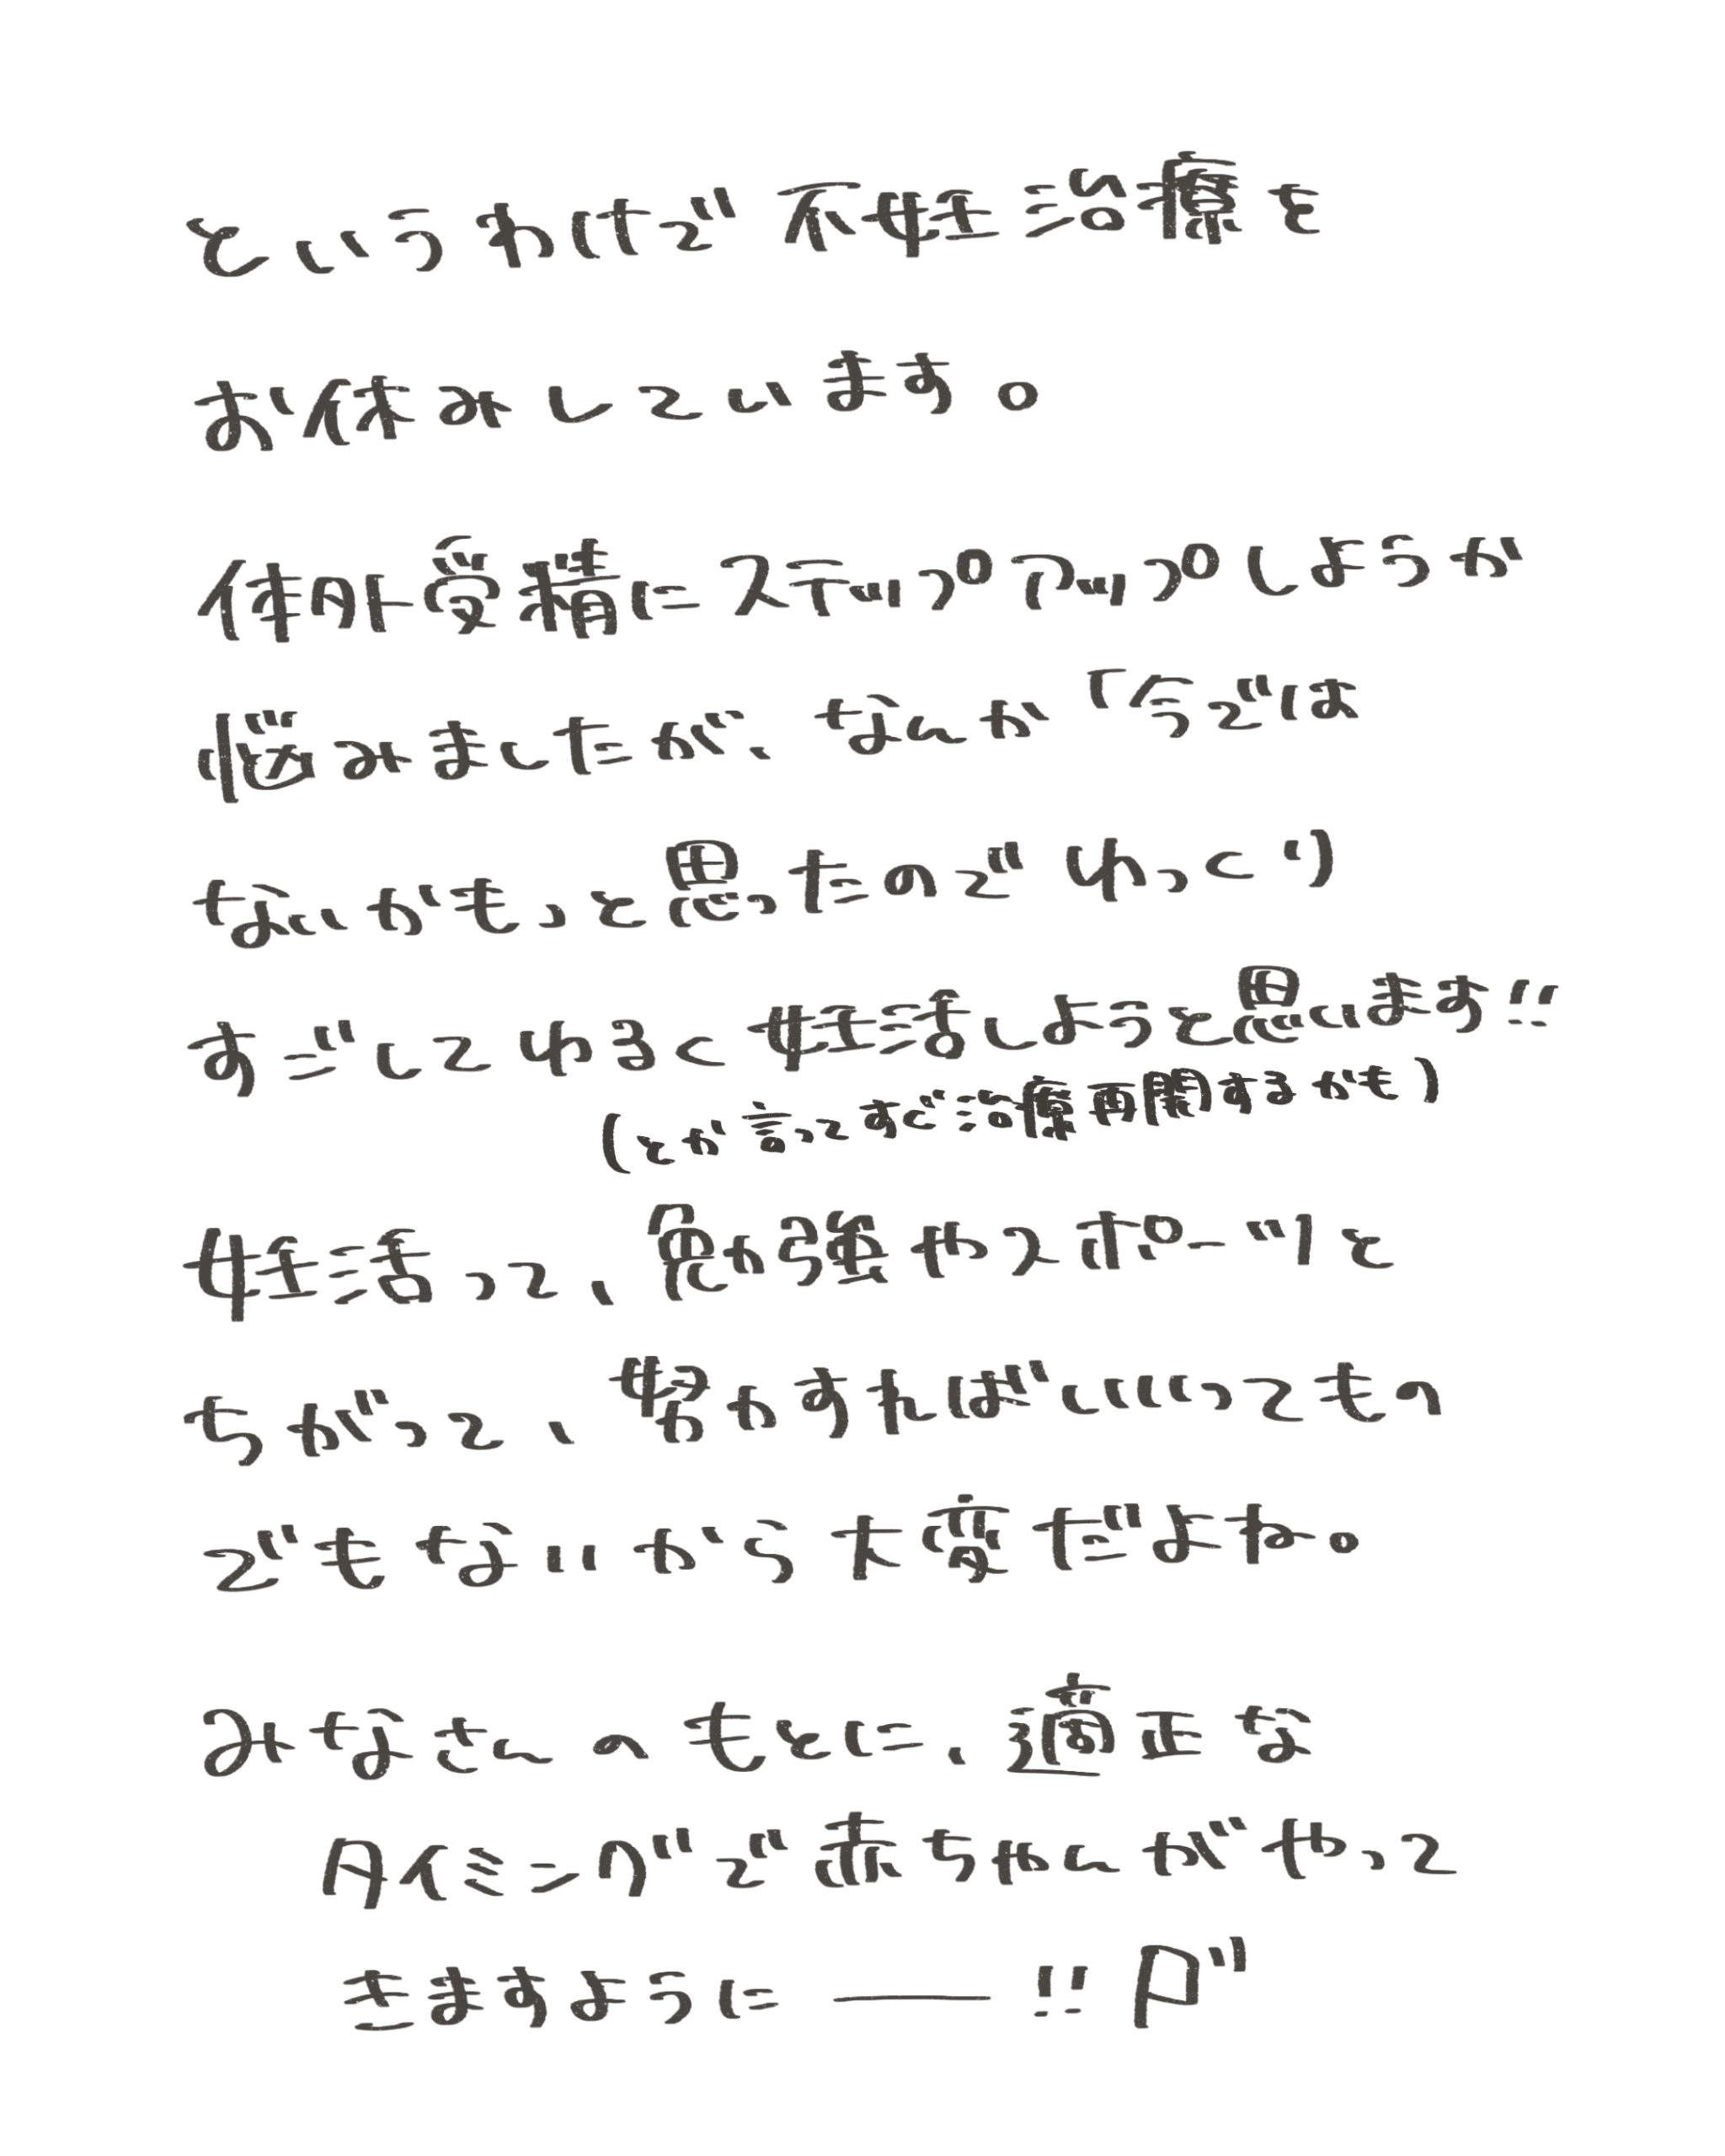 というわけで不妊治療を
お休みしています。
体外受精にステップアップしようか
悩みましたが、なんか「今では
ないかもっと思ったのでゆっくり
すごしてゆるく妊活しようと思います!!
(とか言ってすぐ治療再開するかも)
妊活って、勉強やスポーツと
ちがって、努力すればいいってもの
でもないから大変だよね。
みなさんのもとに、適正な
タイミングで赤ちゃんがやって
きますように――!!